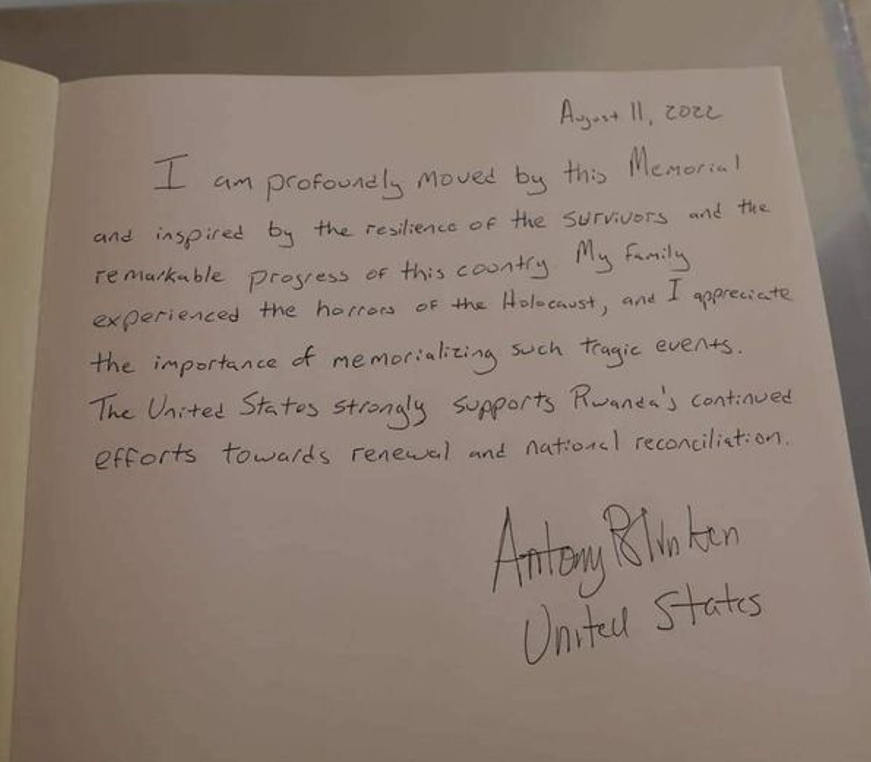 August 11, 2022
I am profoundly moved by this Memorial
and inspired by the resilience of the survivors and the
remarkable progress of this country My family
experienced the horrors of the Holocaust, and I appreciate
the importance of memorializing such tragic events.
The United States strongly supports Rwanda's continued
efforts towards renewal and national reconciliation.
Antony Blinken
United States